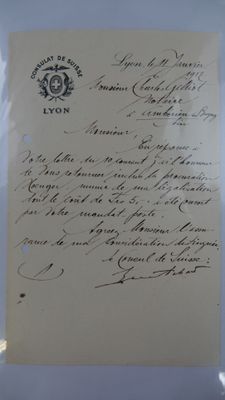 CONSULAT DE SUISSE
LYON
Lyon, le 11 Janvier
1912
Monsieur Charles
Notaire
à Ambérieu
Monsieur!
En réponse à
Votre lettre du 10 courant j'ai l'honneur
de Vous retourner incluse la procuration
munie de ma légalisation
dont le coût de Frs 5.- a été couvert
par Votre mandat poste.
Agréez, Monsieur l'assu-
rance de ma considération distinguée
Le Consul de Suisse: